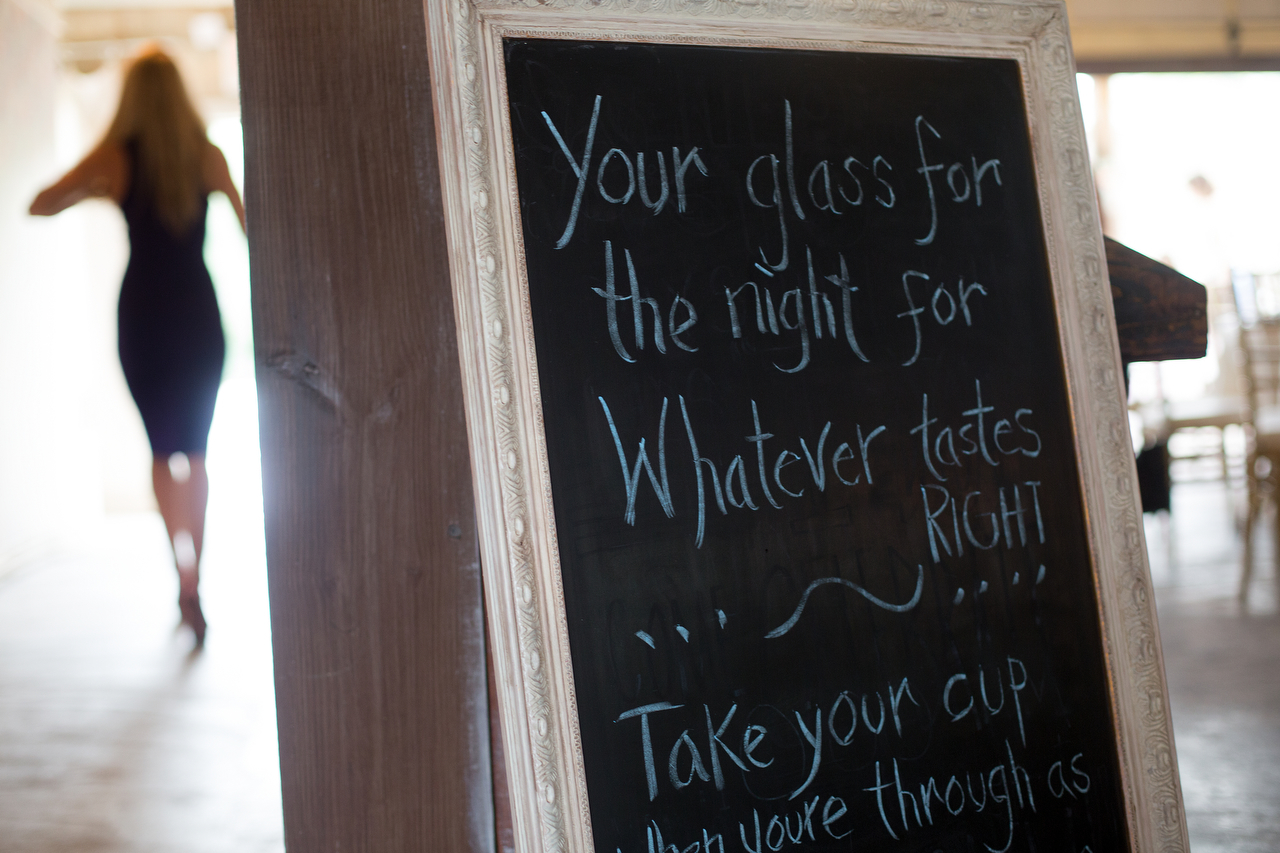 Your glass for
the night for
Whatever tastes
RIGHT
... ~ ....
Take your cup
when you're through as